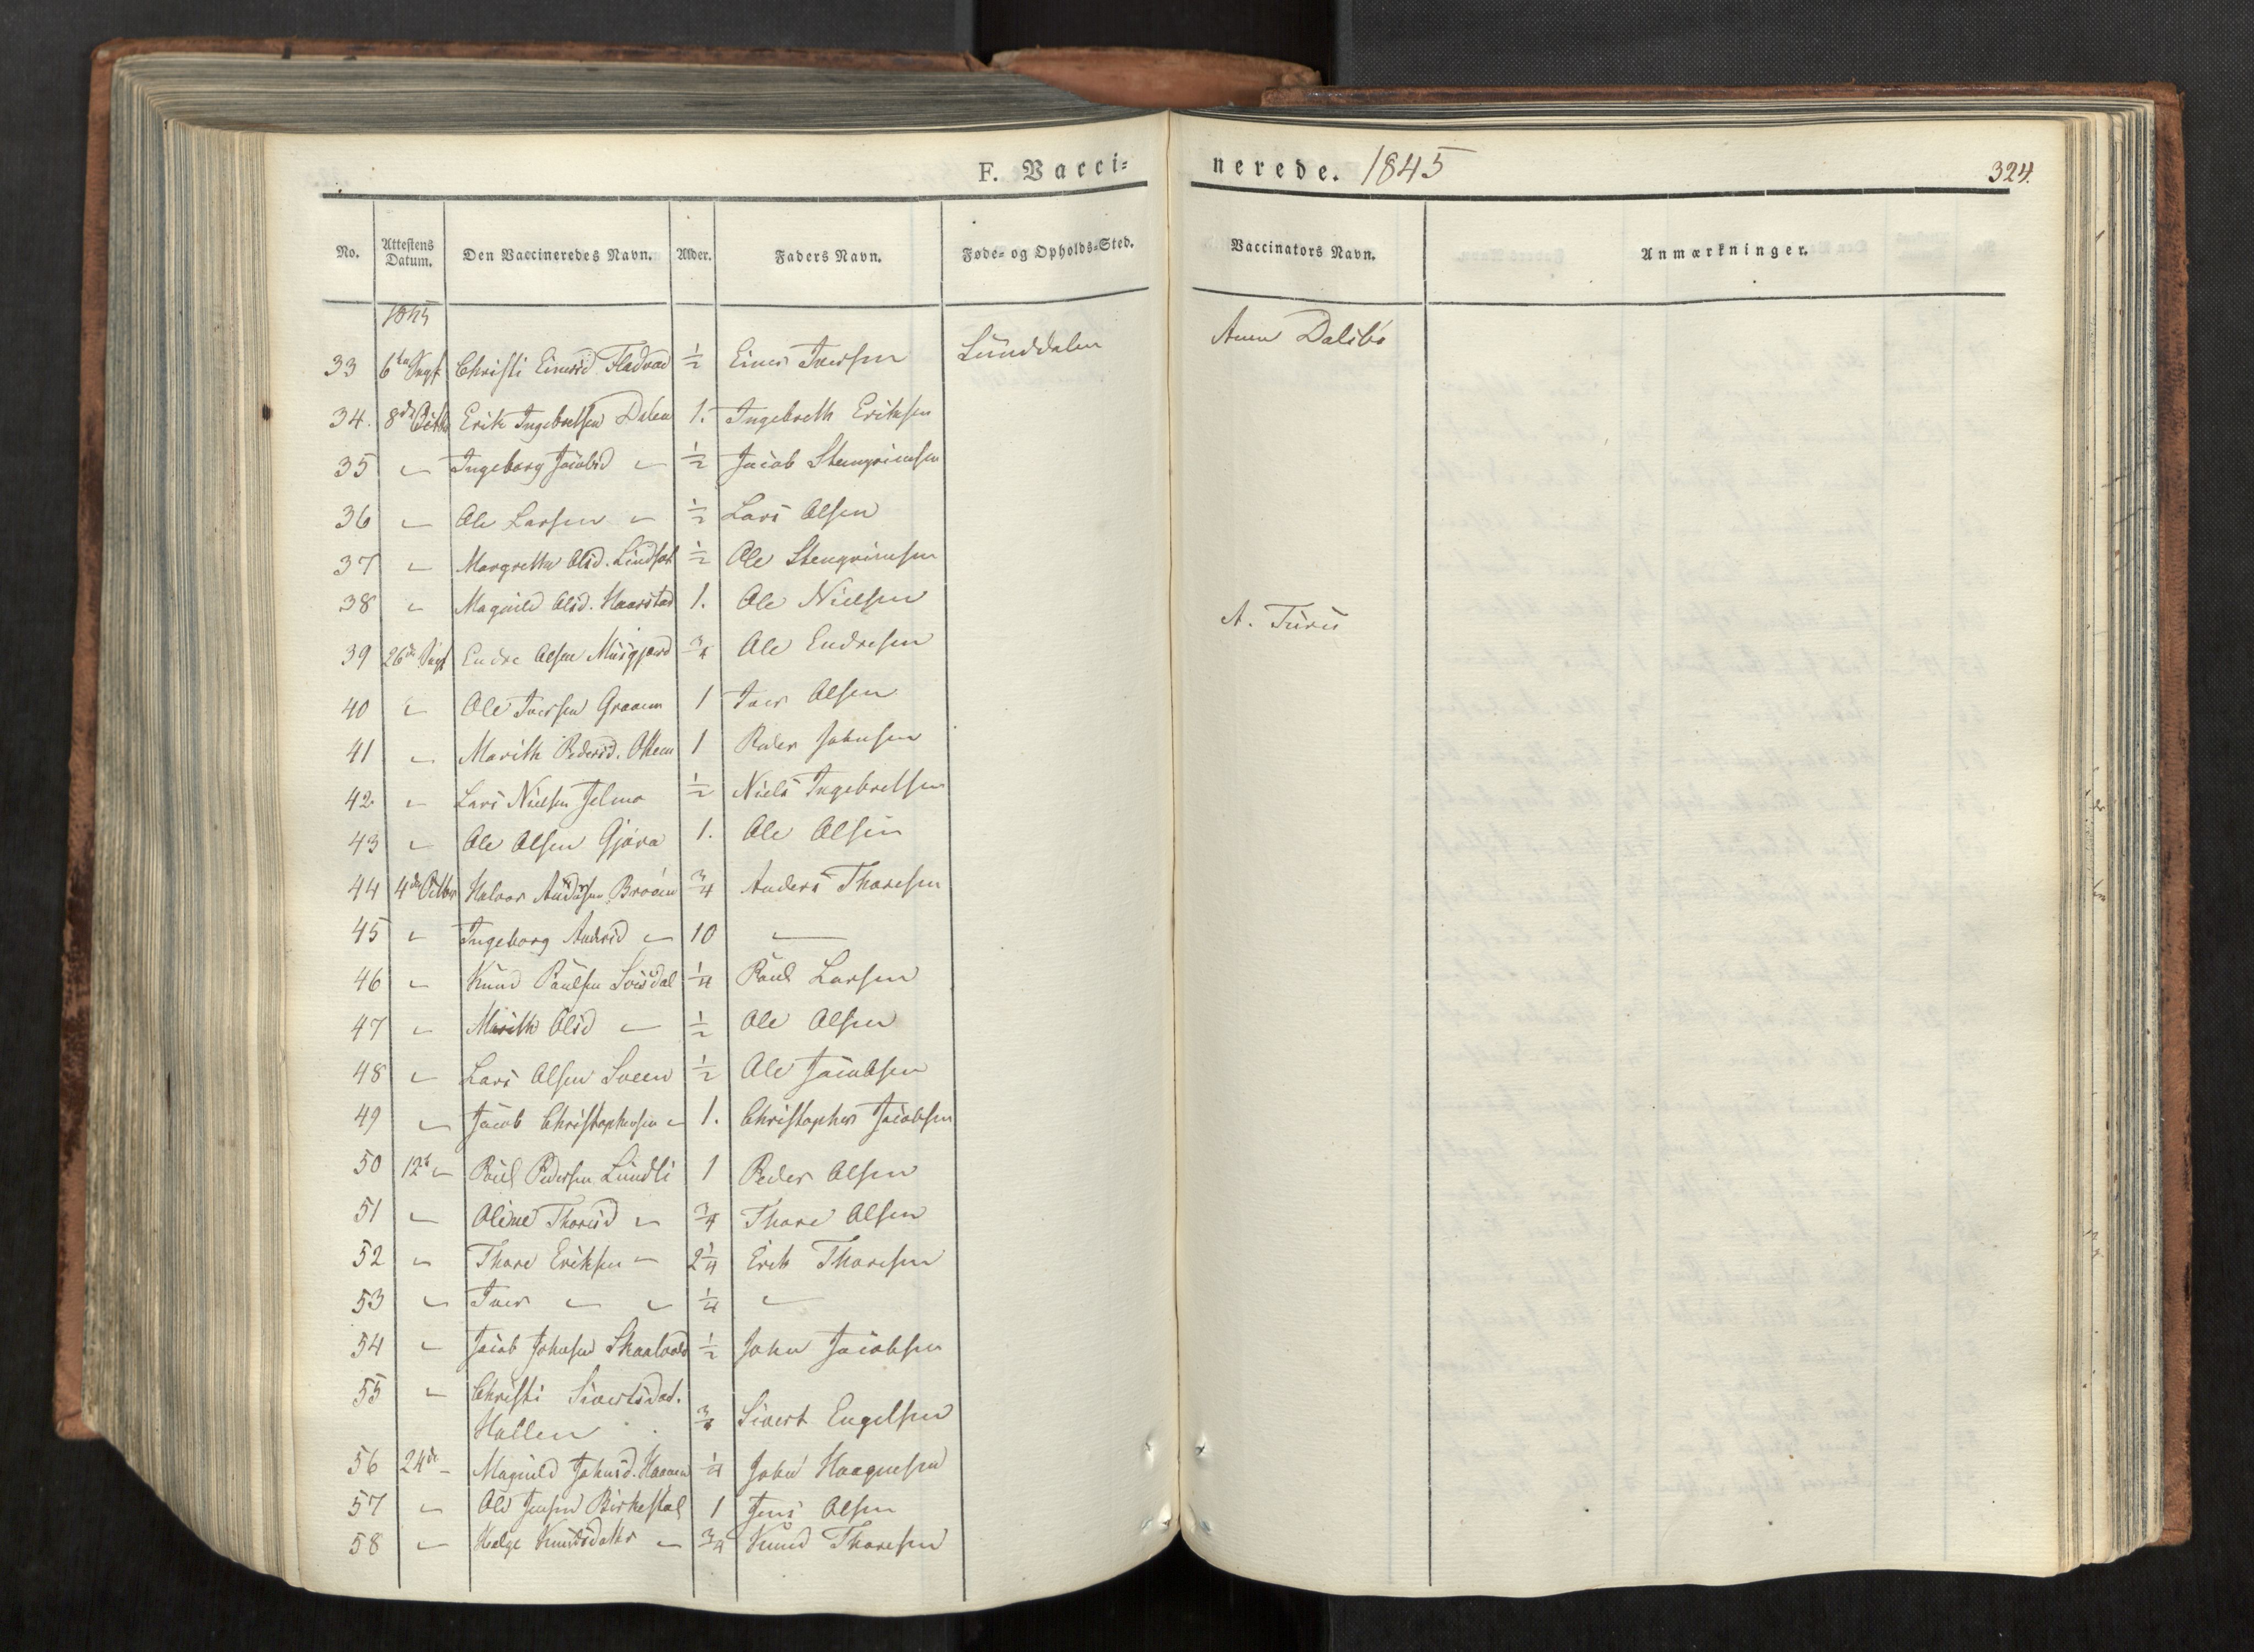 F. Vacci=
nerede. 1845
324.
No. Attestens Datum. Den Vaccineredes Navn. Alder. Faders Navn. Føde= og Opholds=Sted. Vaccinators Navn. Anmærkninger.
1845
33 6te Christi Einersd Fladvad 1/2 Einer Iversen Sunddalen
34. 8de Octbr Erik Ingebretsen Dalen 1. Ingebreth Eriksen
35 " Ingeborg Jacobsd " 1/2 Jacob Stengrimsen
36 " Ole Larsen " 1/2 Lars Olsen
37 " Margrethe Olsd. 1/2 Ole Stengrimsen
38 " Magnild Olsd. Haarstad 1. Ole Nielsen A.
39 26de Endre Olsen Musgjerd 3/4 Ole Endresen
40 " Ole Iversen Graaum 1 Iver Olsen
41 " Marith Pedersd. Ottem 1 Peder Johnsen
42 " Lars Nielsen Jelmo 1/2 Niels Ingebretsen
43 " Ole Olsen Gjøra 1. Ole Olsen
44 4de Octbr Halvor Andersen 3/4 Anders Thoresen
45 " Ingeborg Andersd " 10 "
46 " Knud Paulsen 1/4 Paul Larsen
47 " Marith Olsd " 1/2 Ole Olsen
48 " Lars Olsen Sveen 1/2 Ole Jacobsen
49 " Jacob Christophersen " 1. Christopher Jacobsen
50 12te " Paul Pedersen Lundli 1 Peder Olsen
51 " Oline Thoresd " 3/4 Thore Olsen
52 " Thore Eriksen " 2 1/4 Erik Thoresen
53 " Iver " " 1/4 "
54 " Jacob Johnsen 1/2 John Jacobsen
55 " Christi Sivertsdat.
Hallen 3/4 Sivert Engelsen
56 24de " Magnild Johnsd. 1/4 John Haagensen
57 " Ole Jensen Birkestøl 1 Jens Olsen
58 " Helge Knudsdatter " 3/4 Knud Thoresen